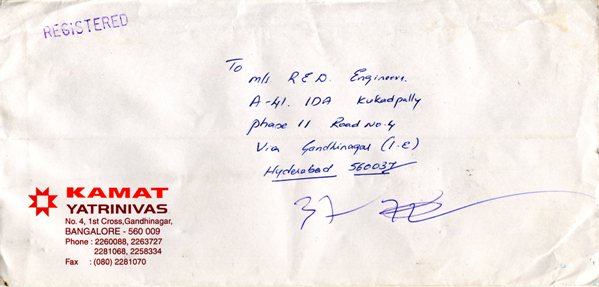 REGISTERED
To
M/s R.E.D. Engineers.
A-41. IDA Kukadpally
Phase II Road No-4
Via Gandhinagar (I.E)
Hyderabad 560037
37
KAMAT
YATRINIVAS
No. 4, 1st Cross,Gandhinagar,
BANGALORE - 560 009
Phone : 2260088, 2263727
2281068, 2258334
Fax : (080) 2281070